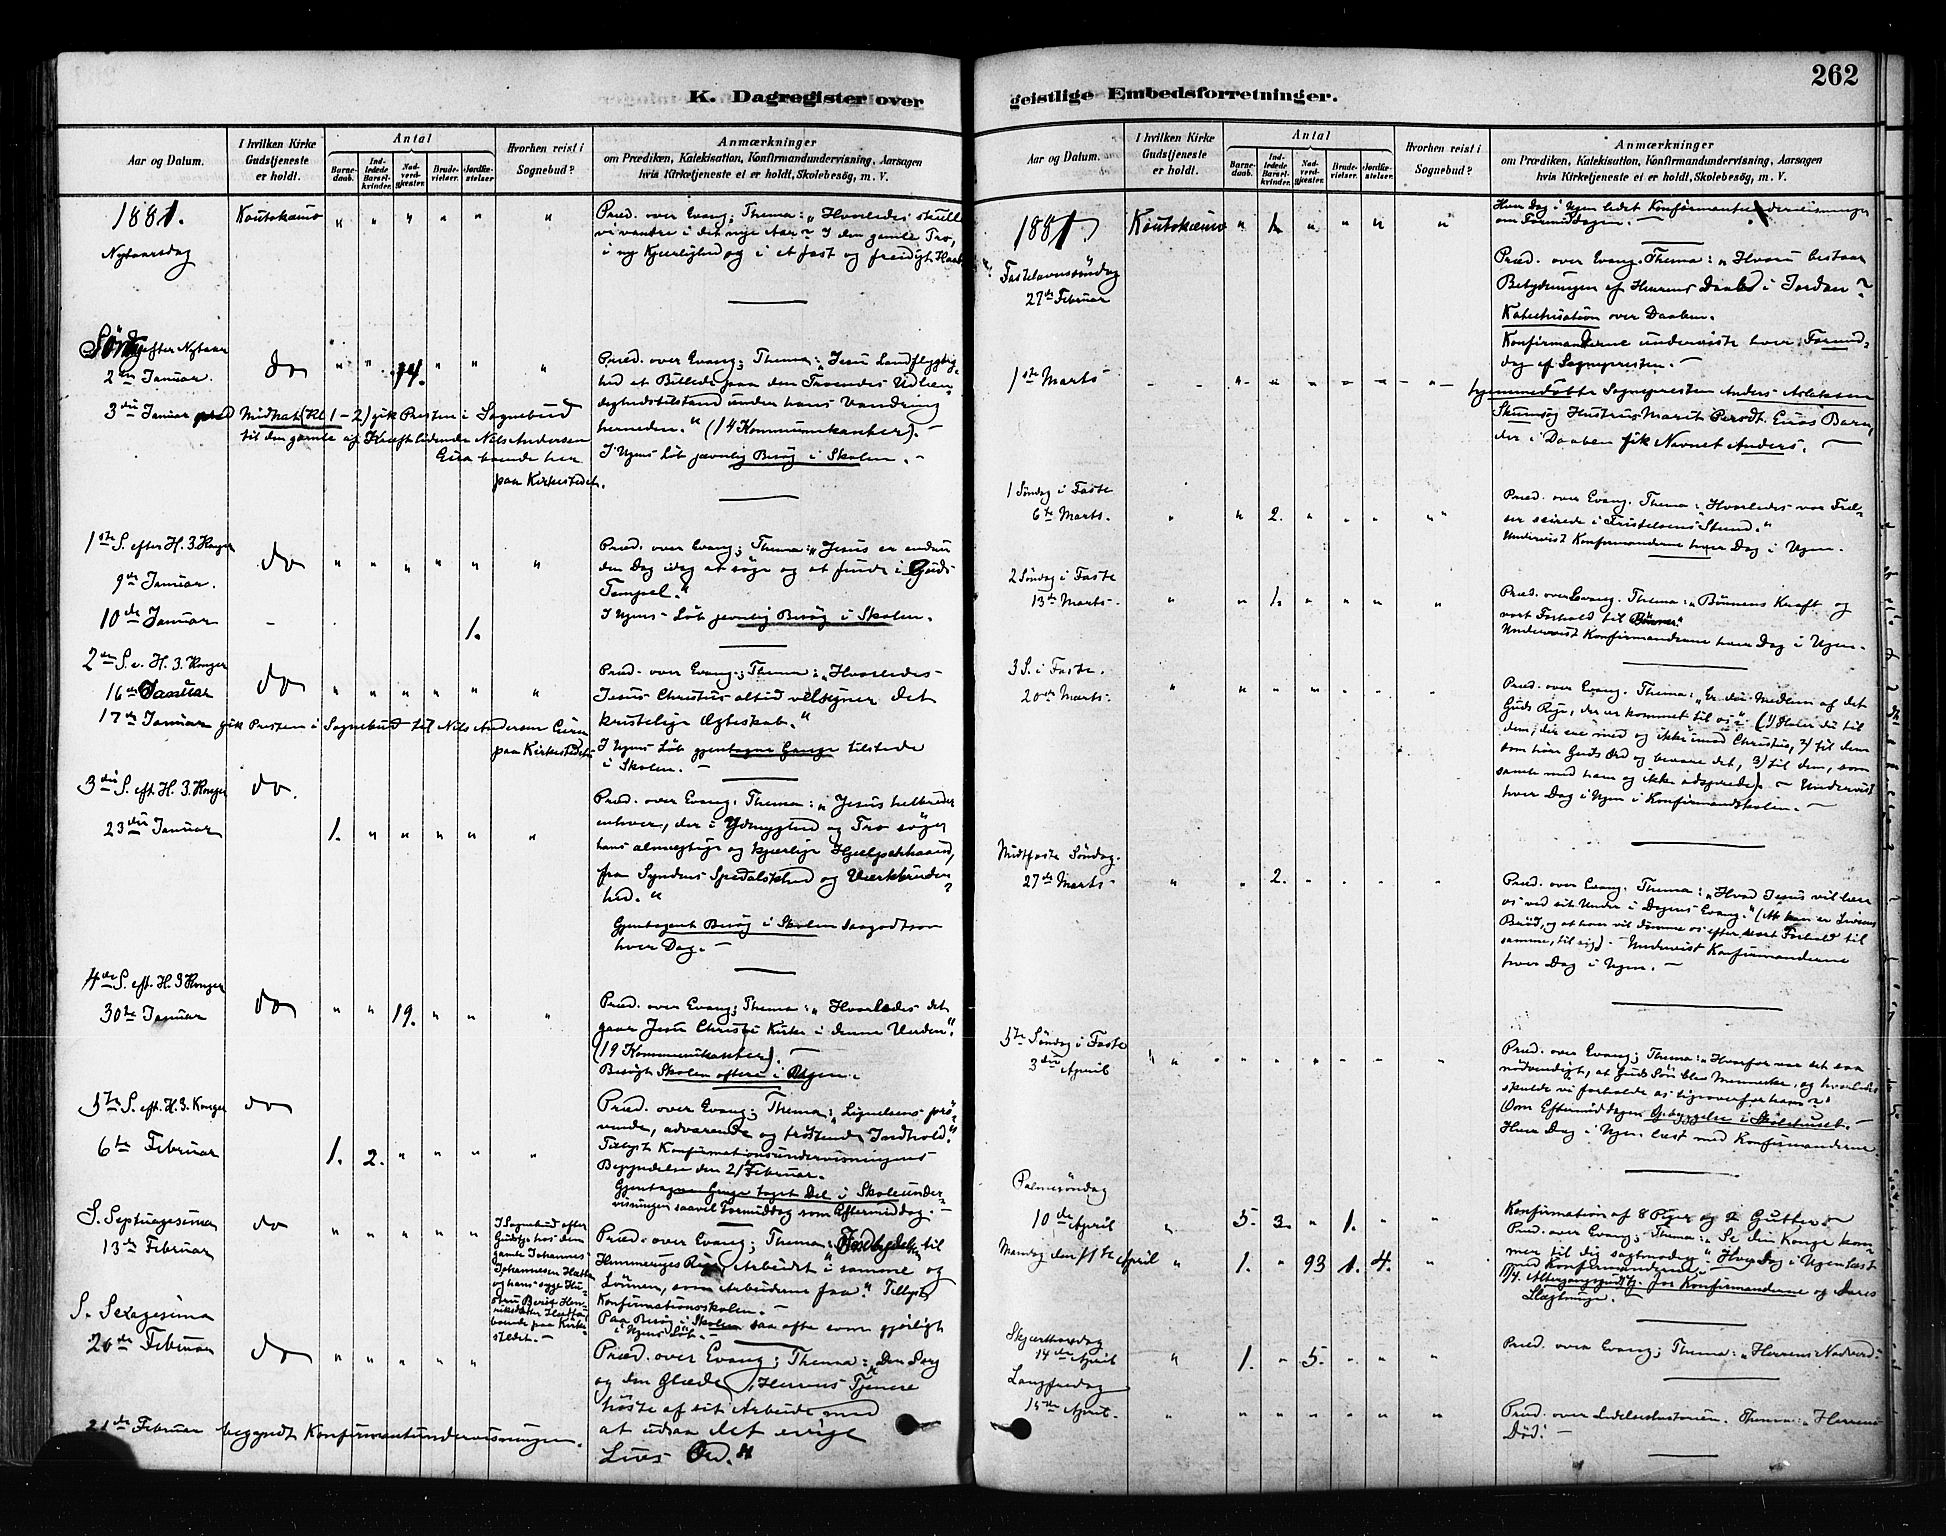 262
K. Dagregister over
geistlige Embedsforretninger.
Aar og Datum.
I hvilken Kirke Gudstjeneste er holdt.
Antal
Barnedaab.
Indledede Barselkvinder.
Nadverdgjester.
Brudevielser.
Jordfæstelser.
Hvorhen reist i Sognebud?
Anmærkninger
om Prædiken, Katekisation, Konfirmandundervisning, Aarsagen
hvis Kirketjeneste ei er holdt, Skolebesøg, m. V.
1881. Koutokæino " " " " " "
Nytaarsdag
Præd. over Evang; Thema: "Hvorledes skulle
vi vandre i det nye Aar? I den gamle Tro,
i ny Kjærlighed og i et fast og freidigt Haab
Sönd. efter Nytaar
2den Januar. do " " 14. " " "
Præd. over Evang; Thema: "Jesu Landflygtig-
hed et Billede paa den Troendes Udlæn-
dighedstilstand under hans Vandring
herneden." (14 Kommunikanter). -
I Ugens Löb jævnlig Besög i Skolen. -
3die Januar Midnat (Kl. 1-2) gik Presten i Sognebud
til den gamle af Kræft lidende Nils Andersen
Eira boende her
paa Kirkestedet.
1ste S. efter H. 3. Konger
9de Januar. do " " " " " "
Præd. over Evang; Thema: "Jesus er endnu
den Dag idag at söge og at finde i Guds
Tempel."
I Ugens Löb jevnlig Besög i Skolen.
10de Januar - 1.
2den S. e. H. 3. Konger
16de Januar do " " " " " "
Præd. over Evang; Thema: "Hvorledes
Jesus Christus altid velsigner det
kristelige Ægteskab."
I Ugens Löb gjentagne Gange tilstede
i Skolen. -
17de Januar gik Presten i Sognebud til Nils Andersen Eira
paa Kirkestedet
3die S. eft. H. 3. Konger do.
23die Januar 1. " " " " "
Præd. over Evang. Thema: "Jesus helbreder
enhver, der i Ydmyghed og Tro söger
hans almægtige og kjærlige Hjælperhaand,
fra Syndens Spedalskhed og Værkbruden-
hed."
Gjentagent Besög i Skolen saagodtsom
hver Dag. -
4de S. eft. H. 3 Konger
30te Januar do " " 19. " " "
Præd. over Evang; Thema: "Hvorledes det
gaar Jesu Christi Kirke i denne Verden".
(19 Kommunikanter). -
Besögt Skolen oftere i Ugen. -
5te S. eft. H. 3. Konger do
6te Februar 1. 2. " " " "
Præd. over Evang; Thema: "Lignelsens prö-
vende, advarende og tröstende Indhold."
Tillyst Konfirmationsundervisningens
Begyndelse den 21 Februar.
Gjentagne Gange taget Del i Skoleunder-
visningen saavel Formiddag som Eftermiddag. -
S. Septuagesima do " " " " "
13de Februar
I Sognebud efter
Gudstj. hos den
gamle Johannes
Johannesen Hætta
og hans syge Hu-
stru Berit Hen-
riksdatter Hætta
boende paa Kirke-
stedet. -
Præd. over Evang; Thema: Indbydelsen til
Himmeriges Rige, Arbeidet i samme og
Lönnen, som Arbeiderne faa." Tillyst
Konfirmationsskolen. -
Paa Besög i Skolen saa ofte som gjörligt
i Ugens Löb. -
S. Sexagesima
20de Februar do " " " " "
Præd. over Evang; Thema: "Den Sorg
og den Glæde, Herrens Tjenere
höste af sit Arbeide med
at udsaa det evige
Livs Ord."
21de Februar begyndt Konfirmantundervisningen.
Aar og Datum.
I hvilken Kirke Gudstjeneste er holdt.
Antal
Barnedaab.
Indledede Barselkvinder.
Nadverdgjester.
Brudevielser.
Jordfæstelser.
Hvorhen reist i Sognebud?
Anmærkninger
om Prædiken, Katekisation, Konfirmandundervisning, Aarsagen
hvis Kirketjeneste ei er holdt, Skolebesøg, m. V.
1881 Koutokæino " 1. " " " "
Hver Dag i Ugen ledet Konfirmantundervisningen
om Formiddagen. -
Fastelavnssöndag
27de Februar
Præd. over Evang. Thema: "Hvori bestaar
Betydningen af Herrens Daab i Jordan?
Katechisation over Daaben.
Konfirmanderne underviste hver Formid-
dag af Sognepresten. -
1ste Marts - - " " " " " -
hjemmedöbte Sognepresten Anders Aslaksen
Skum og Hustru Marit Persdt. Eiras Barn,
der i Daaben fik Navnet Anders. -
1 Söndag i Faste
6te Marts. " " 2. " " " "
Præd. over Evang. Thema: "Hvorledes vor Frel-
ser seirede i Fristelsens Stund."
Undervist Konfirmanderne hver Dag i Ugen.
2 Söndag i Faste
13de Marts. " " 1. " " " "
Præd. over Evang. Thema: "Bönnens Kraft og
vort Forhold til Bönnen"
Undervist Konfirmanderne hver Dag i Ugen.
3 S. i Faste.
20de Marts. " " " " " " "
Præd. over Evang. Thema: "Er du Medlem af det
Guds Rige, der er kommet til os? (1) Hører du til
dem, der ere med og ikke imod Christus, 2) til dem
som hører Guds Ord og bevare det, 3) til dem, som
samle med ham og ikke adsprede). - Undervist
hver Dag i Ugen i Konfirmandskolen. -
Midtfaste Söndag.
27de Marts. " " 2. " " " "
Præd. over Evang. Thema: "Hvad Jesus vil lære
os ved sit Under i Dagens Evang." (At han er Livsens
Bröd, og at han vil dömme os efter vort Forhold til
samme, til sig). - Undervist Konfirmanderne
hver Dag i Ugen. -
5te Söndag i Faste
3die April " " " " " " "
Præd. over Evang; Thema: "Hvorfor var det saa
nödvendigt, at Guds Sön blev Menneske, og hvorledes
skulde vi forholde os ligeoverfor ham?"
Om Eftermiddagen Opbyggelse i Skolehuset. -
Hver Dag i Ugen læst med Konfirmanderne.
Palmesöndag
10de April " 5. 3. " 1. " "
Konfirmation af 8 Piger og 2 Gutter. -
Præd. over Evang; Thema: "Se din Konge kom-
mer til dig sagtmodig". Hver Dag i Ugen læst
med Konfirmanderne.
Mandag den 11te April " 1. " 93 1. 4. "
11/4. Altergangsgudstj. for Konfirmanderne og deres
Slægtninge. -
Skjærthorsdag
14de April " 1. " 5. " " "
Præd. over Evang; Thema: "Herrens Nadverd."
Langfredag
15de April. " " " " " " "
Præd. over Lidelseshistorien. Thema: "Herrens
Död. -